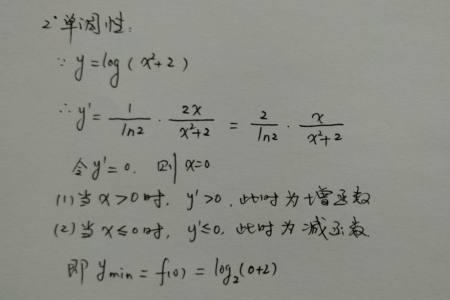 2°单调性:
∵ y=log(x²+2)
∴ y'= 1/ln2 · 2x/x²+2 = 2/ln2 · x/x²+2
令y'=0. 则x=0
(1)当x>0时, y'>0, 此时为增函数
(2)当x≤0时, y'≤0, 此时为减函数.
即 ymin = f(0) = log₂(0+2)